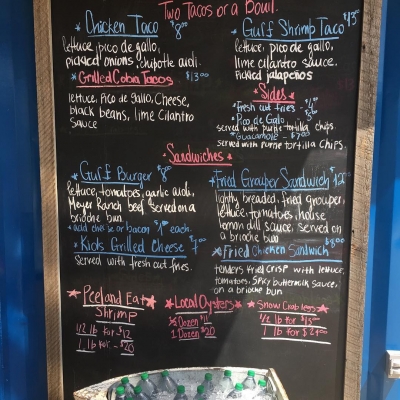 Two Tacos or a Bowl.
Chicken Taco $8.00
lettuce, pico de gallo,
pickled onions, chipotle aioli.
Grilled Cobia Tacos $13.00
lettuce, Pico de gallo, Cheese,
black beans, lime cilantro
sauce
Gulf Shrimp Taco $13
lettuce, pico de gallo,
lime cilantro sauce.
Pickled jalapeños
Sides
Fresh cut fries -
Pico de Galo
served with purple tortilla chips
Guacamole - $7.00
served with purple tortilla chips.
Sandwiches
Gulf Burger $8
lettuce, tomatoes, garlic aioli,
Meyer Ranch beef served on a
brioche bun
add cheese or bacon $1 each.
Kids Grilled Cheese
Served with fresh cut fries.
Fried Grouper Sandwich
lightly breaded, fried grouper,
lettuce, tomatoes, house
lemon dill sauce, served on
a brioche bun
Fried Chicken Sandwich $8.00
tenders fried crisp with lettuce,
tomatoes, spicy buttermilk sauce,
on a brioche bun
Peel and Eat
Shrimp
1/2 lb for $12
1 lb for - $20
Local Oysters
1/2 Dozen $11
1 Dozen $20
Snow Crab legs
1/2 lb for $15
1 lb for